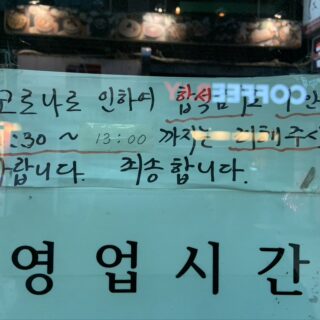 코로나로 인하여 합석
:30 ~ 13:00 까지는 피해주시
랍니다. 죄송합니다.
영업시간
COFFEE